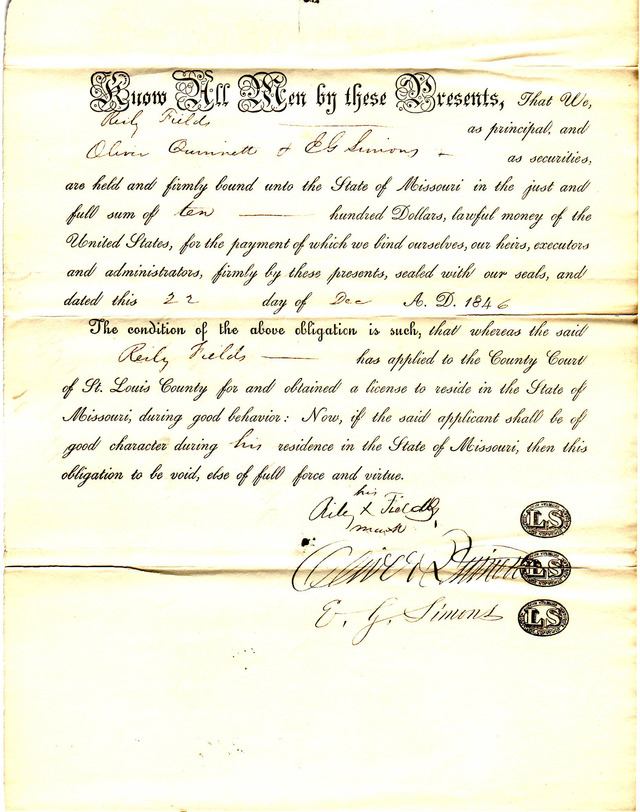 Know All Men by these Presents, That We,
Reily Fields as principal, and
Oliver Quinnett & E G Simons as securities,
are held and firmly bound unto the State of Missouri in the just and
full sum of ten hundred Dollars, lawful money of the
United States, for the payment of which we bind ourselves, our heirs, executors
and administrators, firmly by these presents, sealed with our seals, and
dated this 22 day of Dec A. D. 1846
The condition of the above obligation is such, that whereas the said
Reily Fields has applied to the County Court
of St. Louis County for and obtained a license to reside in the State of
Missouri, during good behavior: Now, if the said applicant shall be of
good character during his residence in the State of Missouri, then this
obligation to be void, else of full force and virtue.
his
Riley X Fields
mark
LS
Oliver Quinnett
LS
E. G. Simons
LS